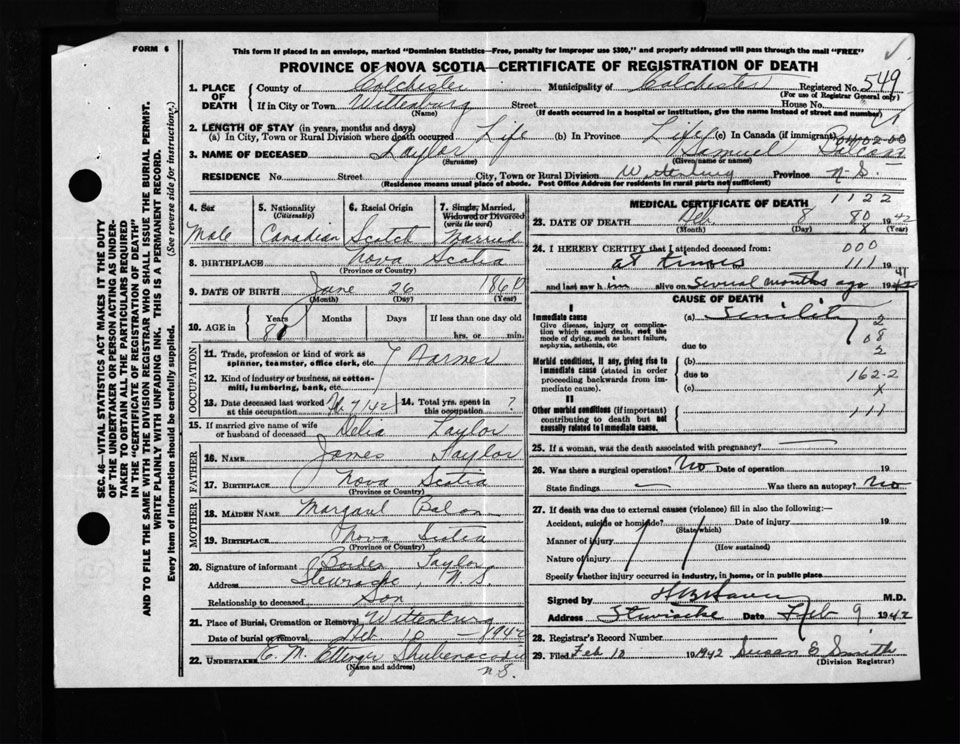 FORM 6
This form if placed in an envelope, marked "Dominion Statistics—Free, penalty for improper use $300," and properly addressed will pass through the mail "FREE"
PROVINCE OF NOVA SCOTIA—CERTIFICATE OF REGISTRATION OF DEATH
1. PLACE OF DEATH
County of Colchester Municipality of Colchester Registered No. 549
(For use of Registrar General only)
If in City or Town Wittenburg Street House No.
(Name) (If death occurred in a hospital or institution, give the name instead of street and number)
2. LENGTH OF STAY (in years, months and days)
(a) In City, Town or Rural Division where death occurred Life (b) In Province Life (c) In Canada (if immigrant)
3. NAME OF DECEASED Taylor Samuel
(Surname) (Given name or names)
RESIDENCE No. Street City, Town or Rural Division Wittenburg Province N.S.
(Residence means usual place of abode. Post Office Address for residents in rural parts not sufficient)
4. Sex Male
5. Nationality (Citizenship) Canadian
6. Racial Origin Scotch
7. Single, Married, Widowed or Divorced (write the word) Married
8. BIRTHPLACE Nova Scotia
(Province or Country)
9. DATE OF BIRTH June 26 1860
(Month) (Day) (Year)
10. AGE in Years Months Days If less than one day old
hrs. or min.
OCCUPATION
11. Trade, profession or kind of work as spinner, teamster, office clerk, etc. Farmer
12. Kind of industry or business, as cotton-mill, lumbering, bank, etc.
13. Date deceased last worked at this occupation 14. Total yrs. spent in this occupation ?
15. If married give name of wife or husband of deceased Delia Taylor
FATHER
16. NAME James Taylor
17. BIRTHPLACE Nova Scotia
(Province or Country)
MOTHER
18. MAIDEN NAME
19. BIRTHPLACE Nova Scotia
(Province or Country)
20. Signature of informant Borden Taylor
Address N.S.
Relationship to deceased Son
21. Place of Burial, Cremation or Removal Wittenburg
Date of burial or removal Feb. 10 - 1942
22. UNDERTAKER E. M. Ettinger Shubenacadie
(Name and address) N.S.
MEDICAL CERTIFICATE OF DEATH 1122
23. DATE OF DEATH Feb 8 1942
(Month) (Day) (Year)
24. I HEREBY CERTIFY that I attended deceased from: 000
at times 111 19
and last saw him alive on Several months ago 19 41
CAUSE OF DEATH
I
Immediate cause
Give disease, injury or complication which caused death, not the mode of dying, such as heart failure, asphyxia, asthenia, etc
(a) Senility
due to
Morbid conditions, if any, giving rise to immediate cause (stated in order proceeding backwards from immediate cause).
(b)
due to 162-2
(c) x
II
Other morbid conditions (if important) contributing to death but not causally related to immediate cause.
111
25. If a woman, was the death associated with pregnancy?
26. Was there a surgical operation? No Date of operation 19
State findings Was there an autopsy? No
27. If death was due to external causes (violence) fill in also the following:—
Accident, suicide or homicide? Date of injury 19
(State which)
Manner of injury
(How sustained)
Nature of injury
Specify whether injury occurred in industry, in home, or in public place
Signed by M.D.
Address Stewiacke Date Feb 9 1942
28. Registrar's Record Number
29. Filed Feb 10 1942 Susan E Smith
(Division Registrar)
SEC. 46—VITAL STATISTICS ACT MAKES IT THE DUTY OF THE UNDERTAKER OR PERSON ACTING AS UNDERTAKER TO OBTAIN ALL THE PARTICULARS REQUIRED IN THE "CERTIFICATE OF REGISTRATION OF DEATH" AND TO FILE THE SAME WITH THE DIVISION REGISTRAR WHO SHALL ISSUE THE BURIAL PERMIT.
WRITE PLAINLY WITH UNFADING INK. THIS IS A PERMANENT RECORD.
Every item of information should be carefully supplied. (See reverse side for instructions.)